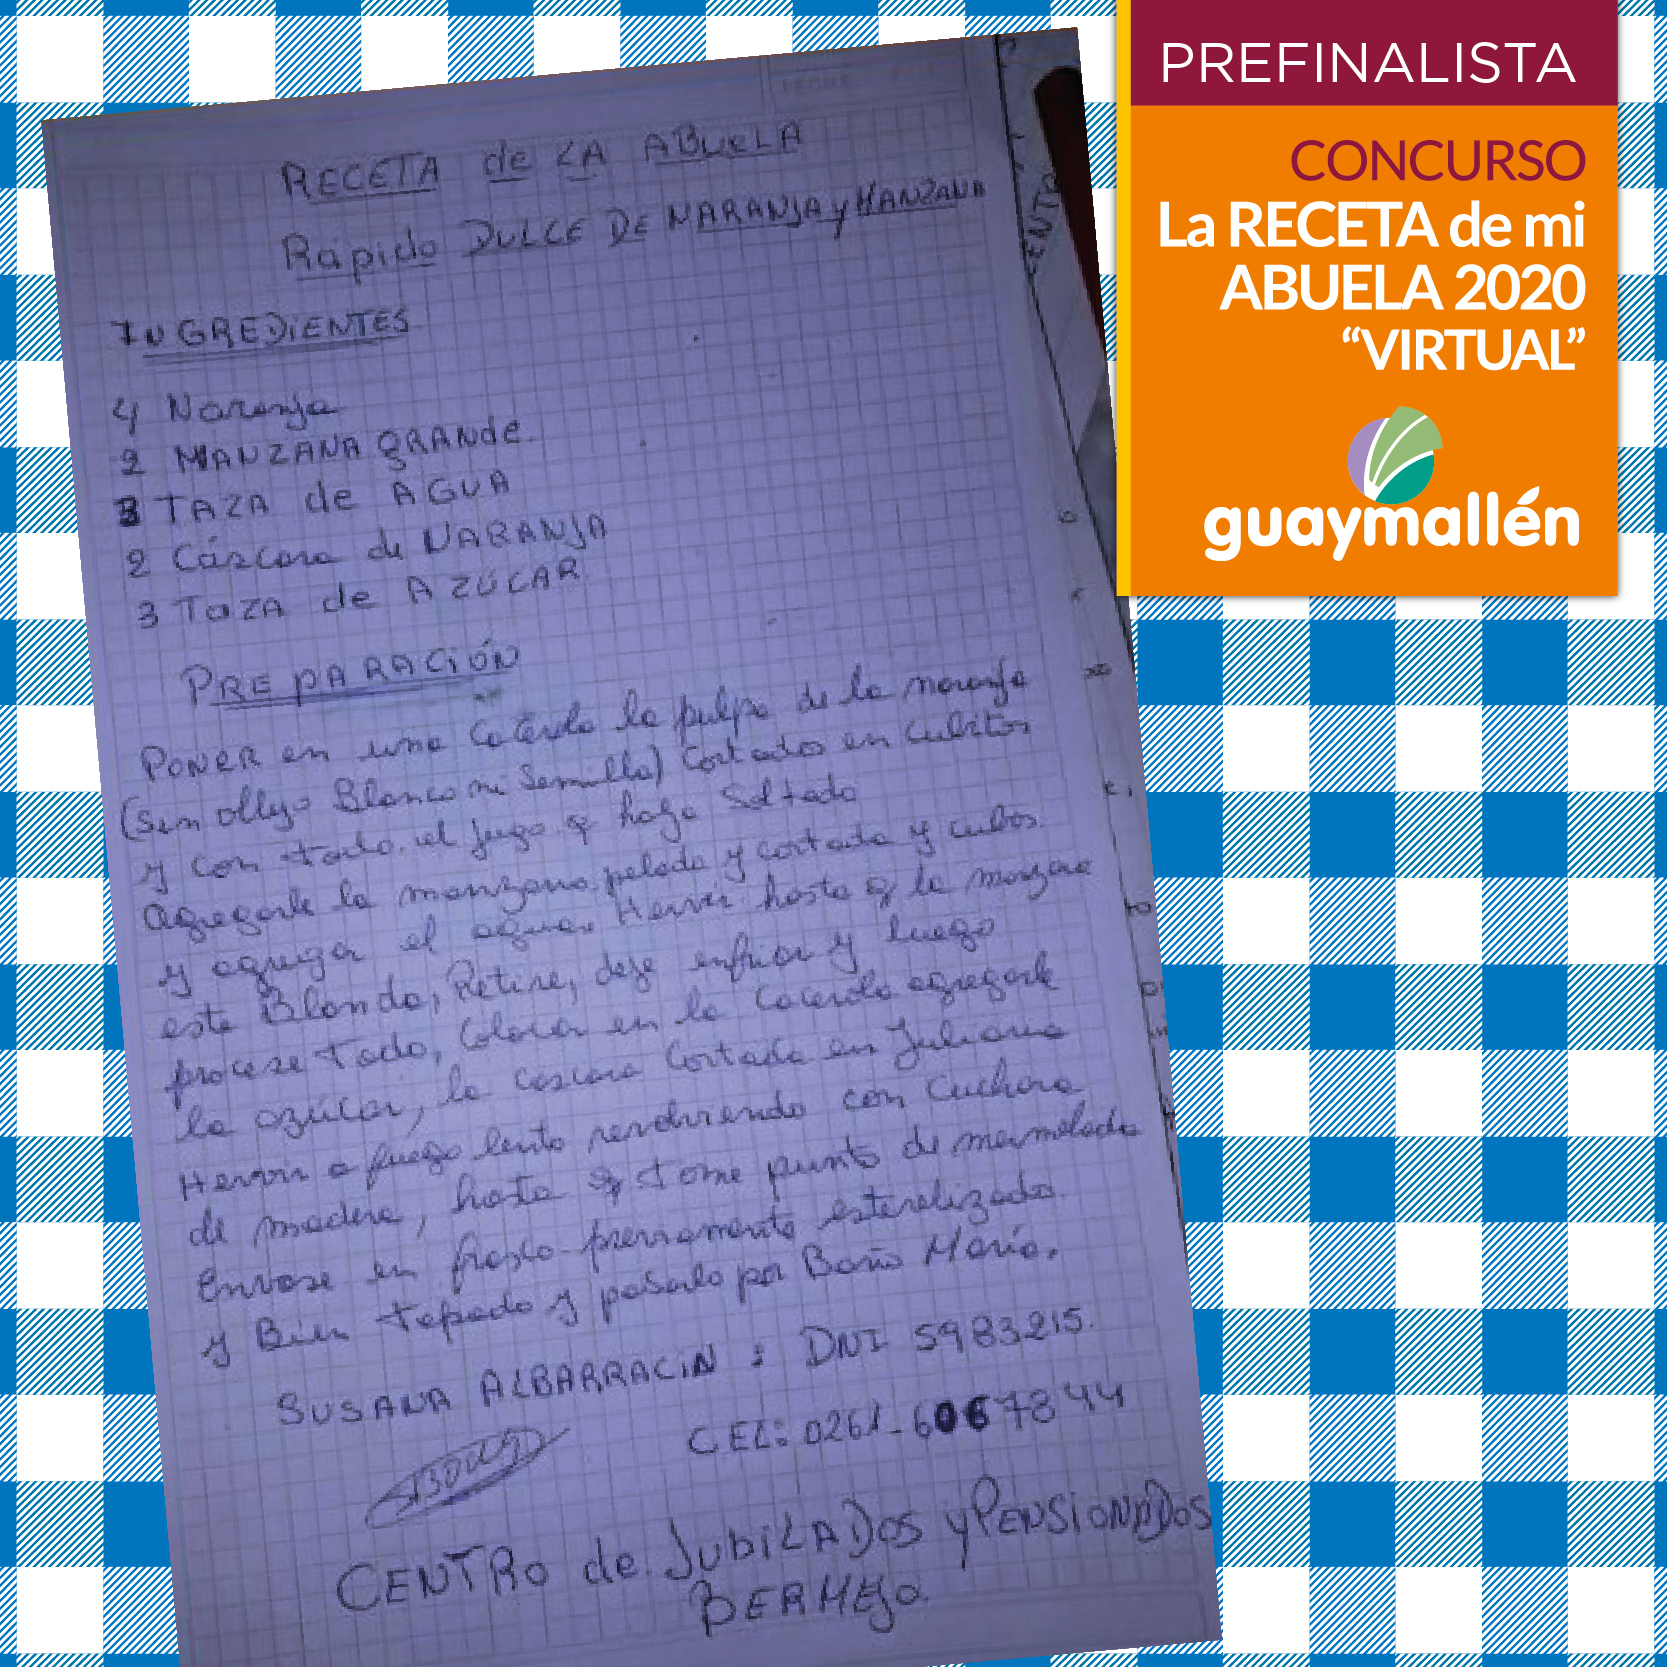 PREFINALISTA
CONCURSO
La RECETA de mi
ABUELA 2020
“VIRTUAL”
guaymallén
RECETA de LA ABueLA
Rápido DULCE DE NARANJA y MANZANA
INGREDIENTES
4 Naranja
2 MANZANA GRANde.
3 TAZA de AGUA
2 Cáscara de NARANJA
3 TaZA de AZÚCAR.
PREPARACIÓN
PONER en una Cacerola la pulpa de la naranja
(Sin ollejo Blanco ni Semilla) Cortados en cubitos
y con todo el jugo q haya Soltado
agregarle la manzana pelada y cortada y cubos.
y agregar el agua, Hervir hasta q la manzana
este Blanda, Retire, deje enfriar y luego
procese todo, Colocar en la Cacerola agregarle
la azúcar, la cascara Cortada en Juliana
Hervir a fuego lento revolviendo con Cuchara
de madera, hasta q tome punto de mermelada
Envase en frasco previamente esterelizados.
y Bien tapado y pasarlo por Baño María.
SUSANA ALBARRACIN : DNI 5983215.
CEL: 0261-6067844
CENTRO de JubiLADOS y PENSIONADOS
BERMEJO.